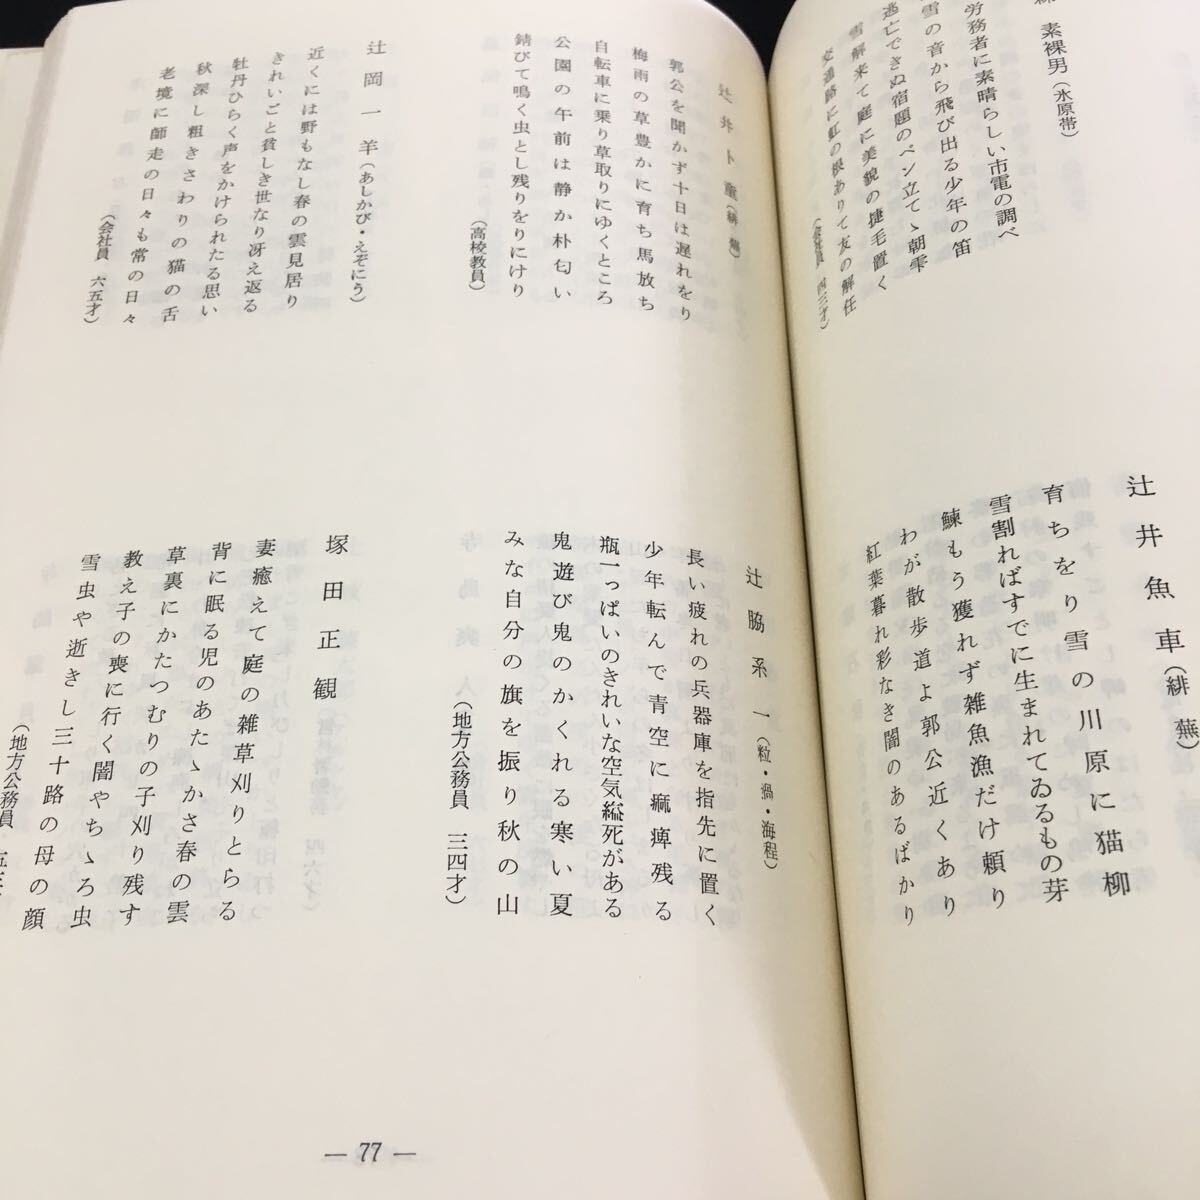 素裸男(氷原帯)
労務者に素晴らしい市電の調べ
雪の音から飛び出る少年の笛
逃亡できぬ宿題のペン立てゝ朝雫
雪解来て庭に美貌の捷毛置く
交通路に虹の根ありて友の解任
(会社員 四三才)
辻井魚車(緋蕪)
育ちをり雪の川原に猫柳
雪割ればすでに生まれてゐるもの芽
鰊もう獲れず雑魚漁だけ頼り
わが散歩道よ郭公近くあり
紅葉暮れ彩なき闇のあるばかり
辻井卜童(緋蕪)
郭公を聞かず十日は遅れをり
梅雨の草豊かに育ち馬放ち
自転車に乗り草取りにゆくところ
公園の午前は静か朴匂い
錆びて鳴く虫とし残りをりにけり
(高校教員)
辻岡一羊(あしかび・えぞにう)
近くには野もなし春の雲見居り
きれいごと貧しき世なり冴え返る
牡丹ひらく声をかけられたる思い
秋深し粗きさわりの猫の舌
老境に師走の日々も常の日々
(会社員 六五才)
辻脇系一(粒・渦・海程)
長い疲れの兵器庫を指先に置く
少年転んで青空に痲痺残る
瓶一っぱいのきれいな空気縊死がある
鬼遊び鬼のかくれる寒い夏
みな自分の旗を振り秋の山
(地方公務員 三四才)
塚田正観
妻癒えて庭の雑草刈りとらる
背に眠る児のあたゝかさ春の雲
草裏にかたつむりの子刈り残す
教え子の喪に行く闇やちゝろ虫
雪虫や逝きし三十路の母の顔
(地方公務員
— 77 —